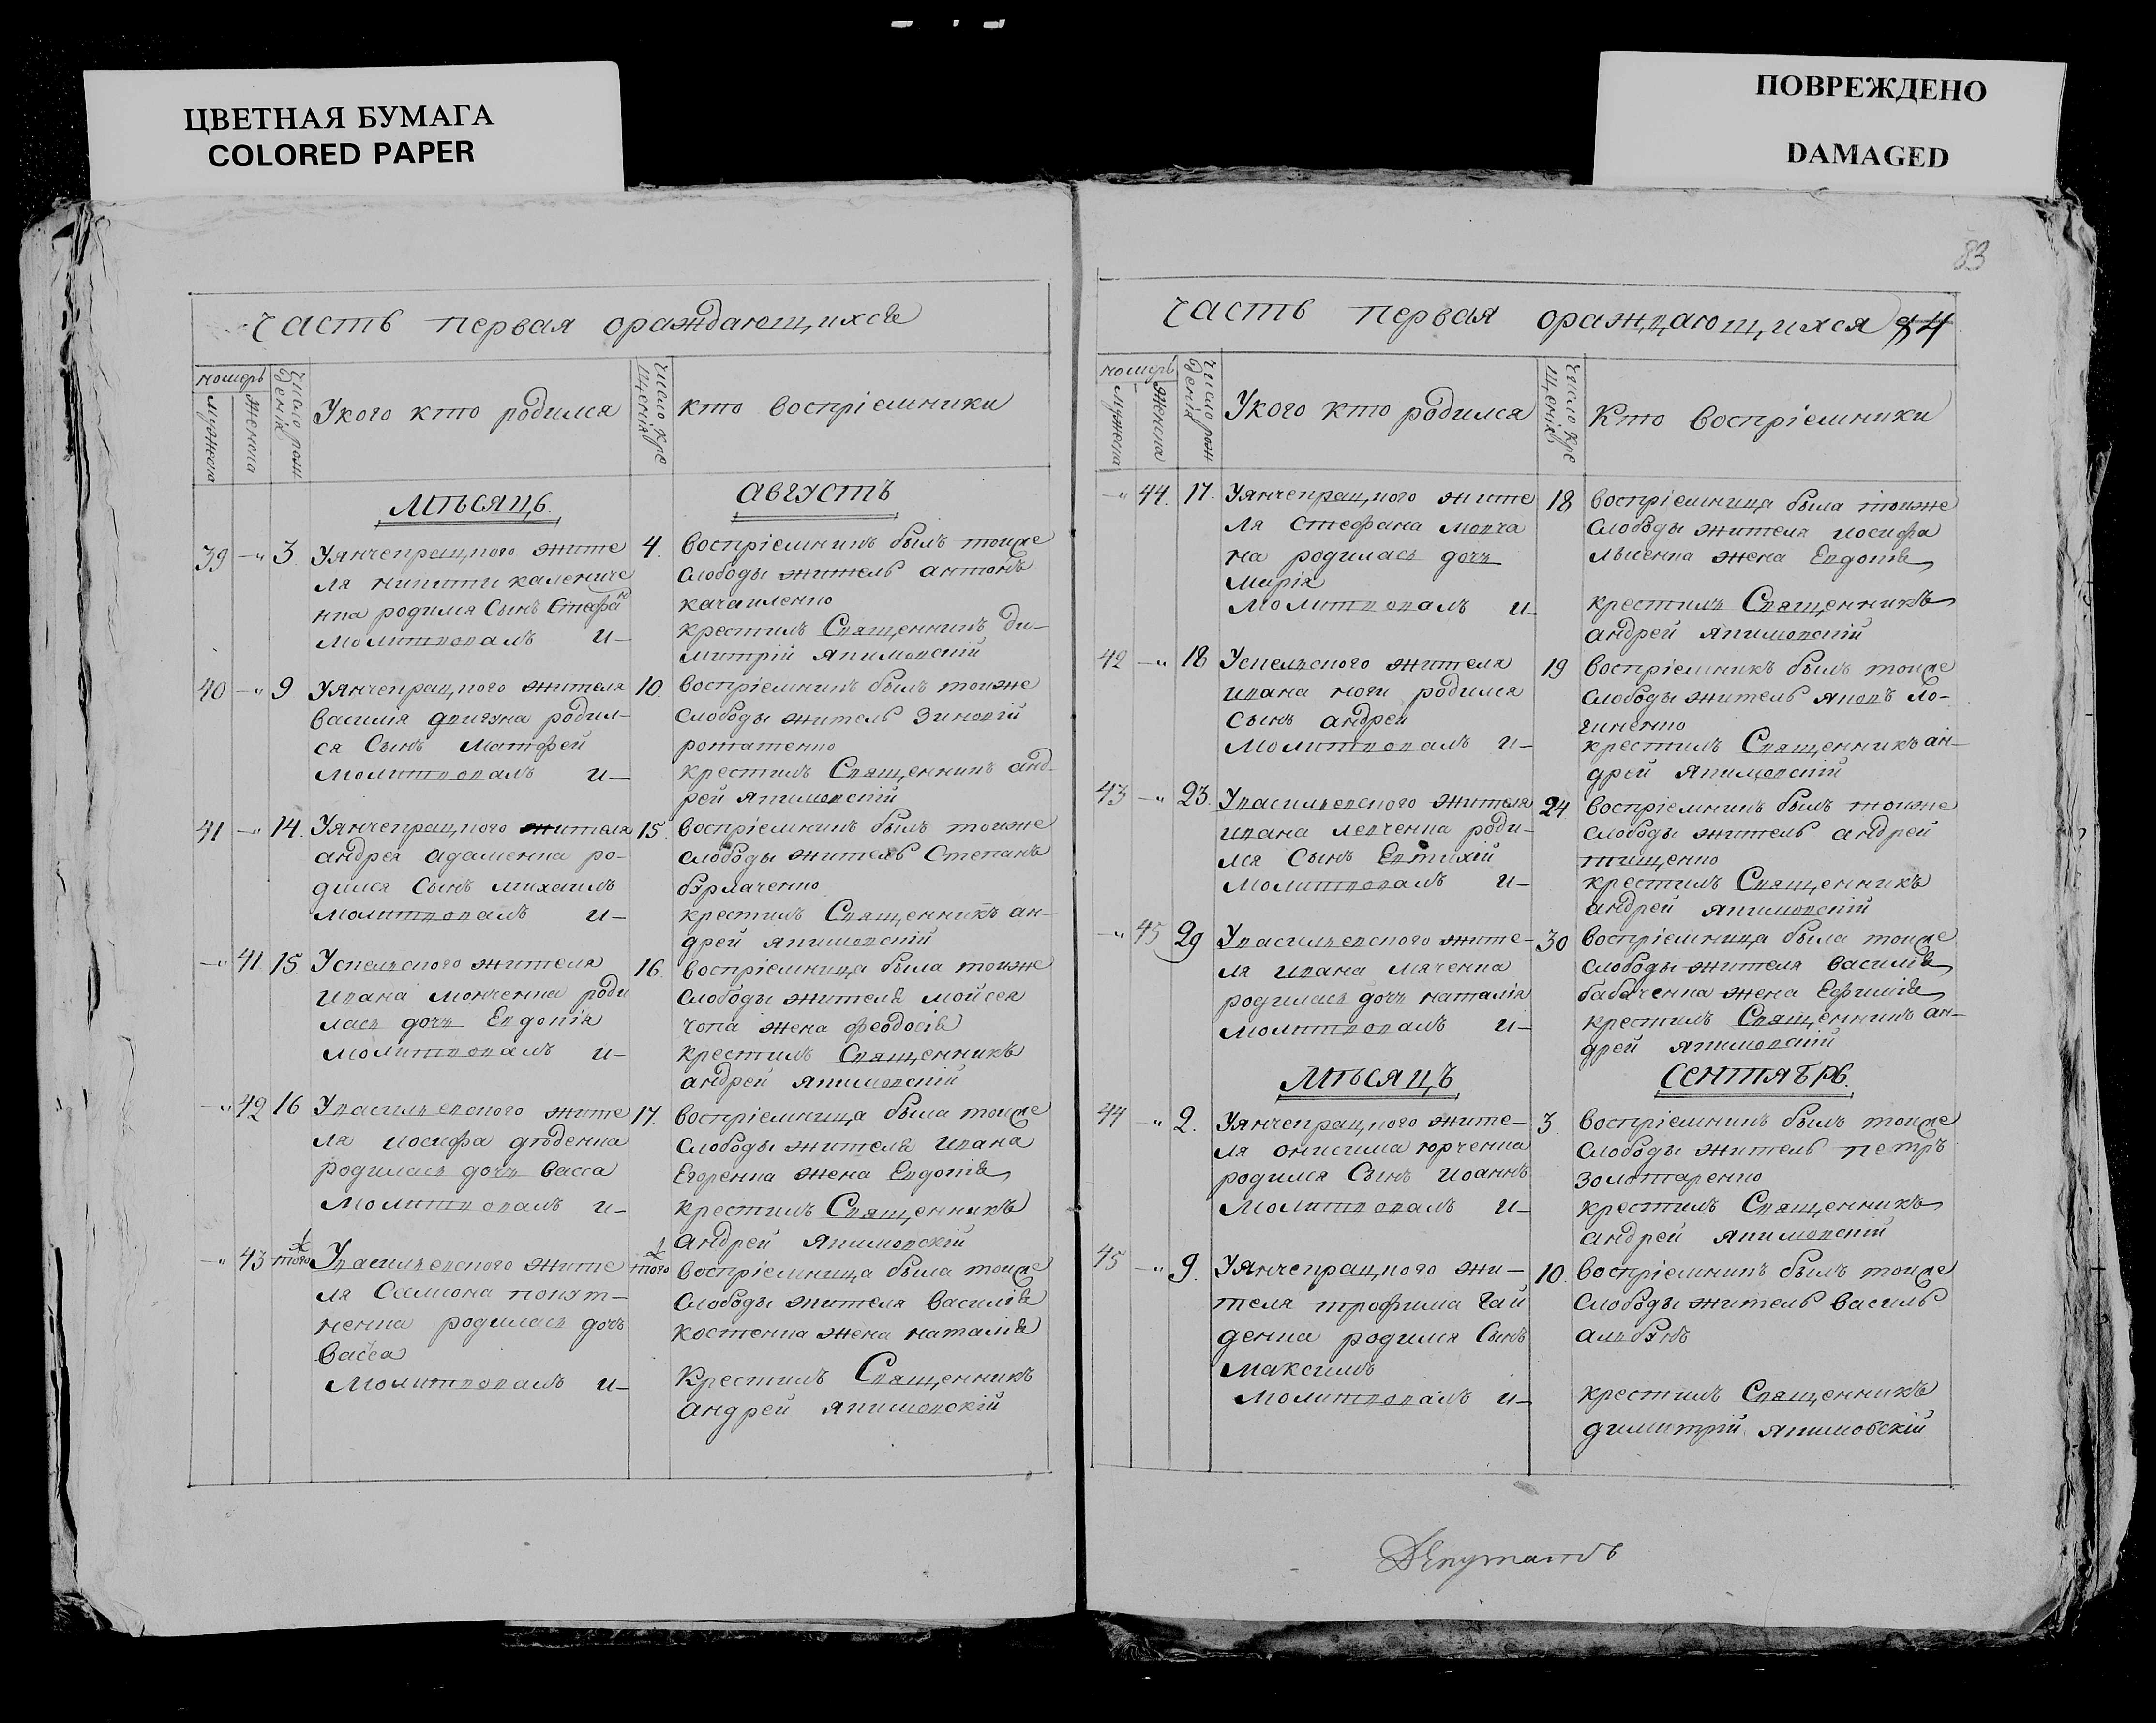 ЦВЕТНАЯ БУМАГА
COLORED PAPER
ПОВРЕЖДЕНО
DAMAGED
83
Часть первая ораждающихся
номеръ
мужеска
женска
Число рождения
Укого кто родился
Число крещенія
кто воспріемники
Мѣсяцъ
августъ
39 —" 3. Уянчеправного жите
ля никити календиче
нка родился Сынъ Стефан
молитвовалъ и—
4. воспріемникъ былъ тоиже
слободы житель антонъ
крестилъ Священникъ ди—
митрій якимовскій
40 —" 9 василия родил—
ся Сынъ Матфей
молитвовалъ и—
10. воспріемникъ былъ тоиже
слободы житель Зиновій
ротатенко
крестилъ Священникъ анд—
рей якимовскій
41 —" 14. жителя
андрея адаменка ро—
дился Сынъ михаилъ
молитвовалъ и—
15. воспріемникъ былъ тоиже
слободы житель Степанъ
бурлаченко
крестилъ Священникъ ан—
дрей якимовскій
—" 41 15. жителя
ивана роди
лась дочь Евдокія
молитвовалъ и—
16. воспріемница была тоиже
слободы жителя мойсея
чопа жена феодосія
крестилъ Священникъ
андрей якимовскій
—" 42 16 Увасилевского жите
ля иосифа дѣденка
родилась дочь васса
молитвовалъ и—
17. воспріемница была тоиже
слободы жителя ивана
Егоренка жена Евдокія
крестилъ Священникъ
андрей якимовскій
—" 43 тогож Увасилевского жите
ля Самсона
родилась дочь
васса
молитвовалъ и—
тогож воспріемница была тоиже
слободы жителя василія
костенка жена наталія
Крестилъ Священникъ
андрей якимовскій
Часть первая ораждающихся 84
номеръ
мужеска
женска
Число рождения
Укого кто родился
Число крещенія
Кто воспріемники
—" 44. 17. жите
ля стефана мовча
на родилась дочь
марія
молитвовалъ и—
18 воспріемница была тоиже
слободы жителя иосифа
лысенка жена Евдокія
крестилъ Священникъ
андрей якимовскій
42 —" 18 жителя
ивана ноги родился
сынъ андрей
молитвовалъ и—
19 воспріемникъ былъ тоиже
слободы житель яковъ ло—
гиненко
крестилъ Священникъ ан—
дрей якимовскій
43 —" 23. Увасилевского жителя
ивана левченка роди—
лся Сынъ Евтихій
молитвовалъ и—
24 воспріемникъ былъ тоиже
слободы житель андрей
тищенко
крестилъ Священникъ
андрей якимовскій
—" 45 29 Увасилевского жите—
ля ивана маченка
родилась дочь наталія
молитвовалъ и—
30 воспріемница была тоиже
слободы жителя василія
бабаченка жена Ефимія
крестилъ Священникъ ан—
дрей якимовскій
Мѣсяцъ
Сентябрь.
44 —" 2. жите—
ля онисима юрченка
родился Сынъ иоаннъ
молитвовалъ и—
3 воспріемникъ былъ тоиже
слободы житель петръ
золотаренко
крестилъ Священникъ
андрей якимовскій
45 —" 9. жи—
теля трофима гай
денка родился Сынъ
максимъ
молитвовалъ и—
10. воспріемникъ былъ тоиже
слободы житель василь
крестилъ Священникъ
димитрій якимовскій
Депутатъ